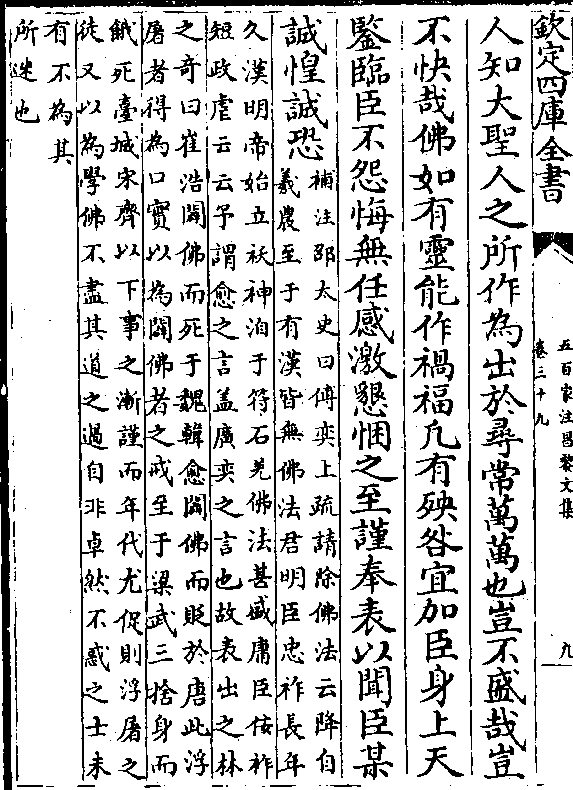 欽定四庫全書
五百家注昌黎文集
卷三十九
九
人知大聖人之所作為出於尋常萬萬也豈不盛哉豈
不快哉佛如有靈能作禍福凡有殃咎宜加臣身上天
鑒臨臣不怨悔無任感激懇悃之至謹奉表以聞臣某
誠惶誠恐
補注邵太史曰傅奕上疏請除佛法云降自
羲農至于有漢皆無佛法君明臣忠祚長年
久漢明帝始立袄神洎于苻石羌佛法甚盛庸臣佞祚
短政虐云云予謂愈之言蓋廣奕之言也故表出之林
之奇曰崔浩闢佛而死于魏韓愈闢佛而貶於唐此浮
屠者得為口實以為闢佛者之戒至于梁武三捨身而
餓死臺城宋齊以下事之漸謹而年代尤促則浮屠之
徒又以為學佛不盡其道之過自非卓然不惑之士未
有不為其
所迷也